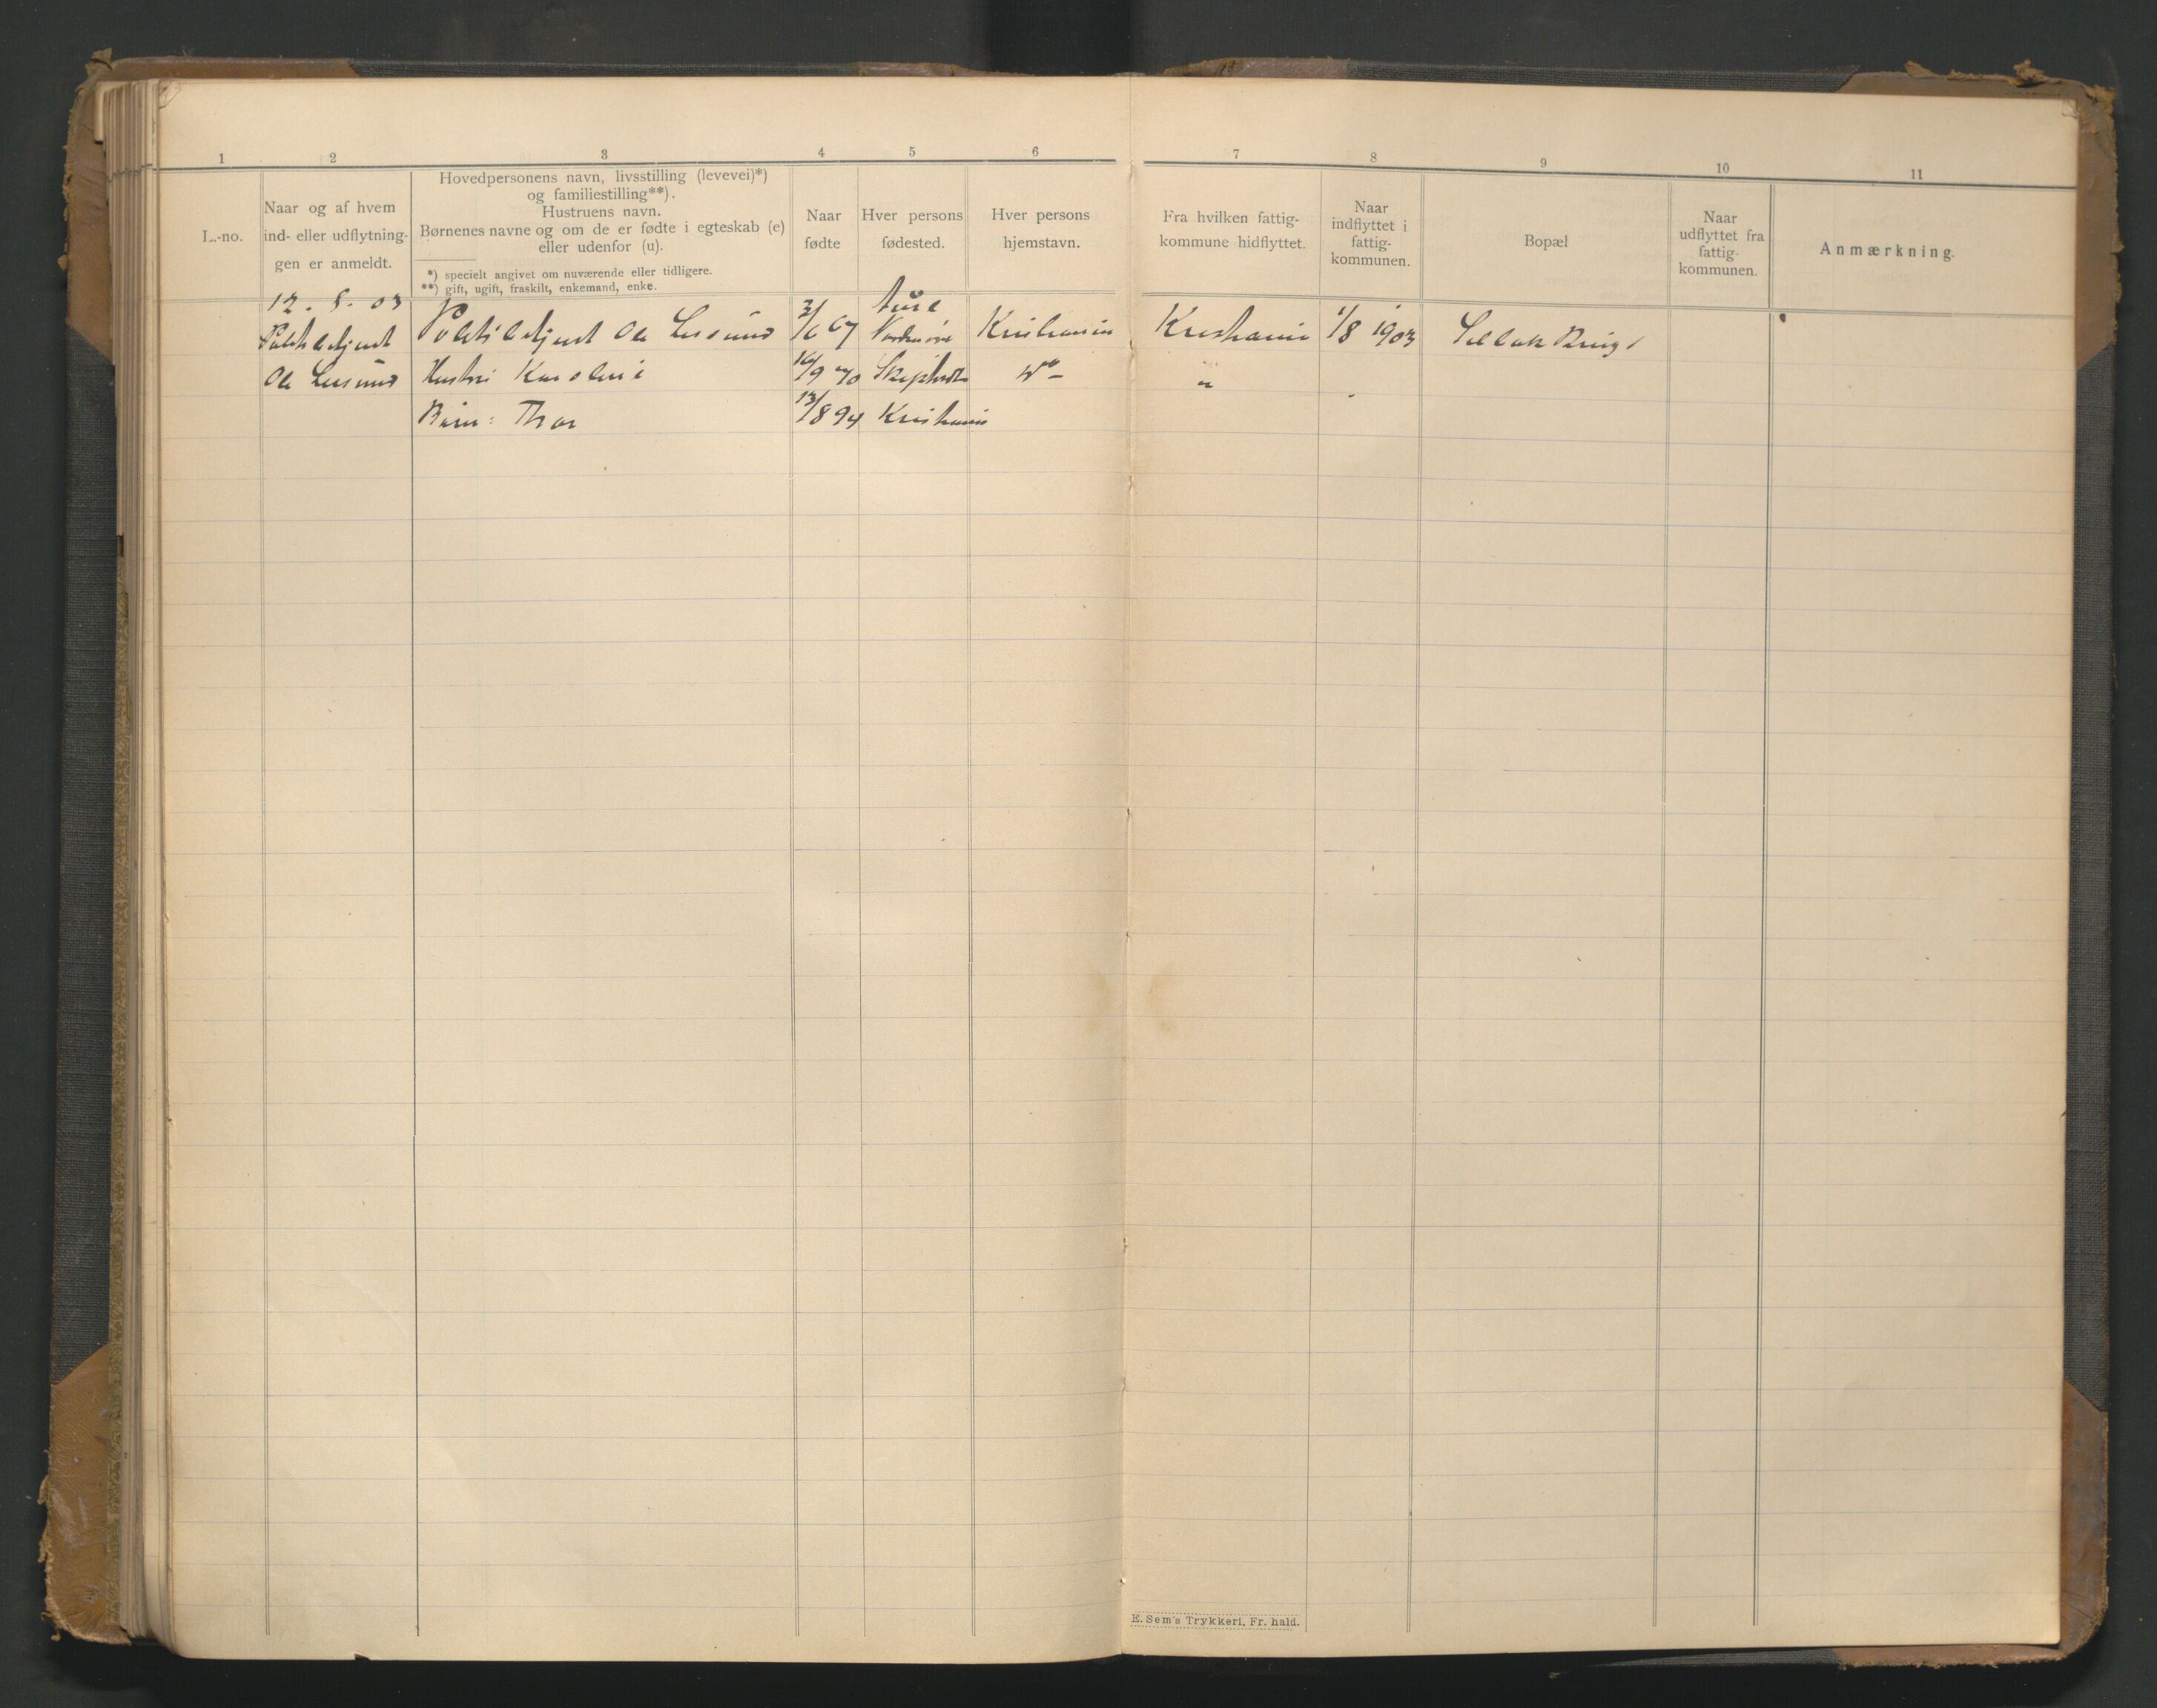 1 2 3 4 5 6 7 8 9 10 11
L.-no.
Naar og af hvem
ind- eller udflytnin-
gen er anmeldt.
Hovedpersonens navn, livsstilling (levevei)*)
og familiestilling**).
Hustruens navn.
Børnenes navne og om de er fødte i egteskab (e)
eller udenfor (u).
*) specielt angivet om nuværende eller tidligere.
**) gift, ugift, fraskilt, enkemand, enke.
Naar
fødte
Hver persons
fødested.
Hver persons
hjemstavn.
Fra hvilken fattig-
kommune hidflyttet.
Naar
indflyttet i
fattig-
kommunen.
Bopæl
Naar
udflyttet fra
fattig-
kommunen.
Anmærkning.
12. 8. 03 Aure
Politibetjent Politibetjent Ole Lersund 2/6 67 Nordmøre Kristiania Kristiania 1/8 1903
Ole Lersund Hustru Karoline 16/9 70 Do " "
Barn: Thor 13/8 94 Kristiania
E. Sem's Trykkeri, Fr. hald.